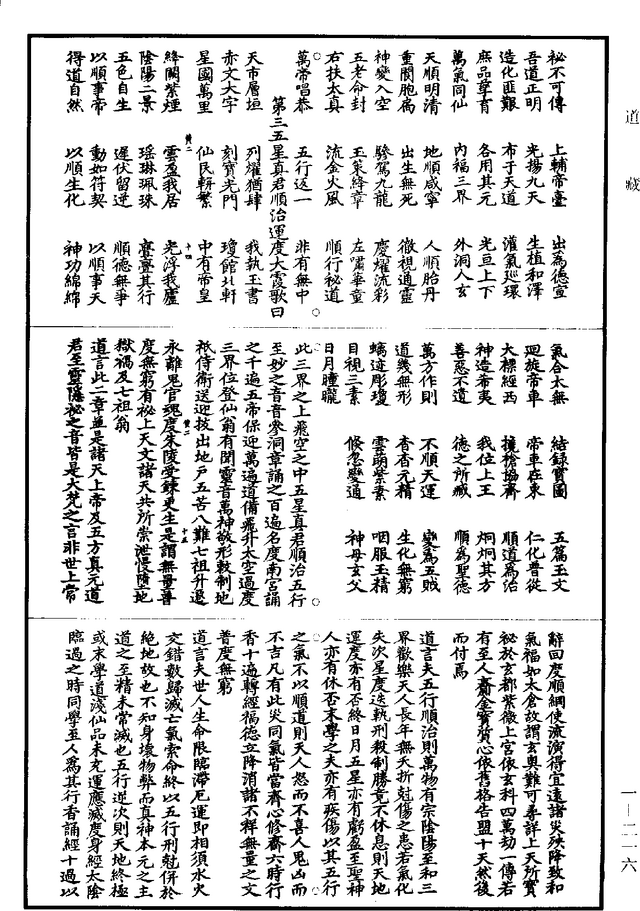 祕不可傳 上輔帝臺 出為德宣
吾道正明 光揚九天 生植和澤
造化匪艱 布于天道 灌氣巡環
庶品孳育 各用其元 光亘上下
萬氣同仙 內福三界 外洞人玄
天順明清 地順咸寧 人順胎丹
重關胞扃 出生無死 微視通靈
神變入空 驂駕九龍 慶耀流彩
五老命封 玉策絳章 左嘯華童
右扶太真 流金火風 順行祕道
萬帝唱恭 五行返一 非有無中
第三五星真君順治運度大霞歌曰
天市層垣 列耀猶肆 我執玉書
赤文大字 刻寶光門 瓊館北軒
星國萬里 仙民駢繁 中有帝皇
絳闕紫煙 雲盈我居 光浮我廬
陰陽二景 瑤琳珮珠 亹亹其行
五色自生 遲伏留逆 順德無爭
以順事帝 動如符契 以順事天
得道自然 以順生化 神功綿綿
氣合太無 結錄寶圖 五篇玉文
迴旋帝車 帝車在東 仁化普從
大標經西 攙槍協齊 順道為治
神造希夷 我位上王 炯炯其方
善惡不遺 德之所臧 順為聖德
萬方作則 不順天運 變為五賊
道幾無形 杳杳元精 生化無窮
螭迹彫瓊 雲萌紫素 咽服玉精
目視三素 倏忽變通 神母玄父
日月曈曨
此三界之上飛空之中五星真君順治五行
至妙之音音參洞章誦之百遍名度南宮誦
之千遍五帝保迎萬遍道備飛升太空過度
三界位登仙翁有聞靈音萬神敬形敕制地
祇侍衛送迎拔出地戶五苦八難七祖升遷
永離鬼官魂度朱陵受鍊更生是謂無量普
度無窮有祕上天文諸天共所崇泄慢墮地
獄禍及七祖翁
道言此二章並是諸天上帝及五方真元道
君至靈隱祕之音皆是大梵之言非世上常
辭回度順綱使流演得宜遠諸災殃降致和
氣福如太倉故謂玄奧難可尋詳上天所寶
祕於玄都紫微上宮依玄科四萬劫一傳若
有至人齎金寶質心依舊格告盟十天然後
而付焉
道言夫五行順治則萬物有宗陰陽至和三
界歡樂天人長年無夭折尅傷之患若氣化
失次星度迭執刑殺制勝竟不休息則天地
運度亦有否終日月五星亦有虧盈至聖神
人亦有休否末學之夫亦有疾傷以其五行
之氣不以順道則天人怒而不喜人鬼凶而
不吉凡有此災同氣皆當齊心修齋六時行
香十遍轉經福德立降消諸不祥無量之文
普度無窮
道言夫世人生命限臨滯厄運即相須水火
交錯數歸滅亡氣索命終以五行刑尅併於
絶地故也不知身壞物弊而真神本元之主
道之至精未常滅也五行逆次則天地終極
或末學道淺仙品未充運應滅度身經太陰
臨過之時同學至人為其行香誦經十過以
道藏
一—二一六